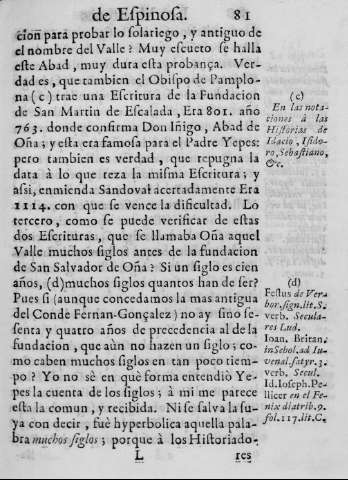 de Espinosa. 81
cion para probar lo solariego, y antiguo de
el nombre del Valle? Muy escueto se halla
este Abad, muy dura esta probança. Ver-
dad es, que tambien el Obispo de Pamplo-
na (c) trae una Escritura de la Fundacion
de San Martin de Escalada, Era 801. año
763. donde confirma Don Iñigo, Abad de
Oña; y esta era famosa para el Padre Yepes:
pero tambien es verdad, que repugna la
data à lo que reza la misma Escritura; y
assi, enmienda Sandoval acertadamente Era
1114. con que se vence la dificultad. Lo
tercero, como se puede verificar de estas
dos Escrituras, que se llamaba Oña aquel
Valle muchos siglos antes de la fundacion
de San Salvador de Oña? Si un siglo es cien
años, (d) muchos siglos quantos han de ser?
Pues si (aunque concedamos la mas antigua
del Conde Fernan-Gonçalez) no ay sino se-
senta y quatro años de precedencia al de la
fundacion, que aùn no hazen un siglo; co-
mo caben muchos siglos en tan poco tiem-
po? Yo no sè en què forma entendiò Ye-
pes la cuenta de los siglos; à mi me parece
esta la comun, y recibida. Ni se salva la su-
ya con decir, fuè hyperbolica aquella pala-
bra muchos siglos; porque à los Historiado-
L res
(c)
En las nota-
ciones à las
Historias de
Idacio, Isido-
ro, Sebastiano,
&c.
(d)
Festus de Ver-
bor. sign. lit. S.
verb. Secula-
res Lud.
Ioan. Britan.
in Schol. ad Iu-
venal. satyr. 2.
verb. Secul.
Id. Ioseph. Pe-
llicer en el Fe-
nix diatrib. 9.
fol. 117. lit. C.